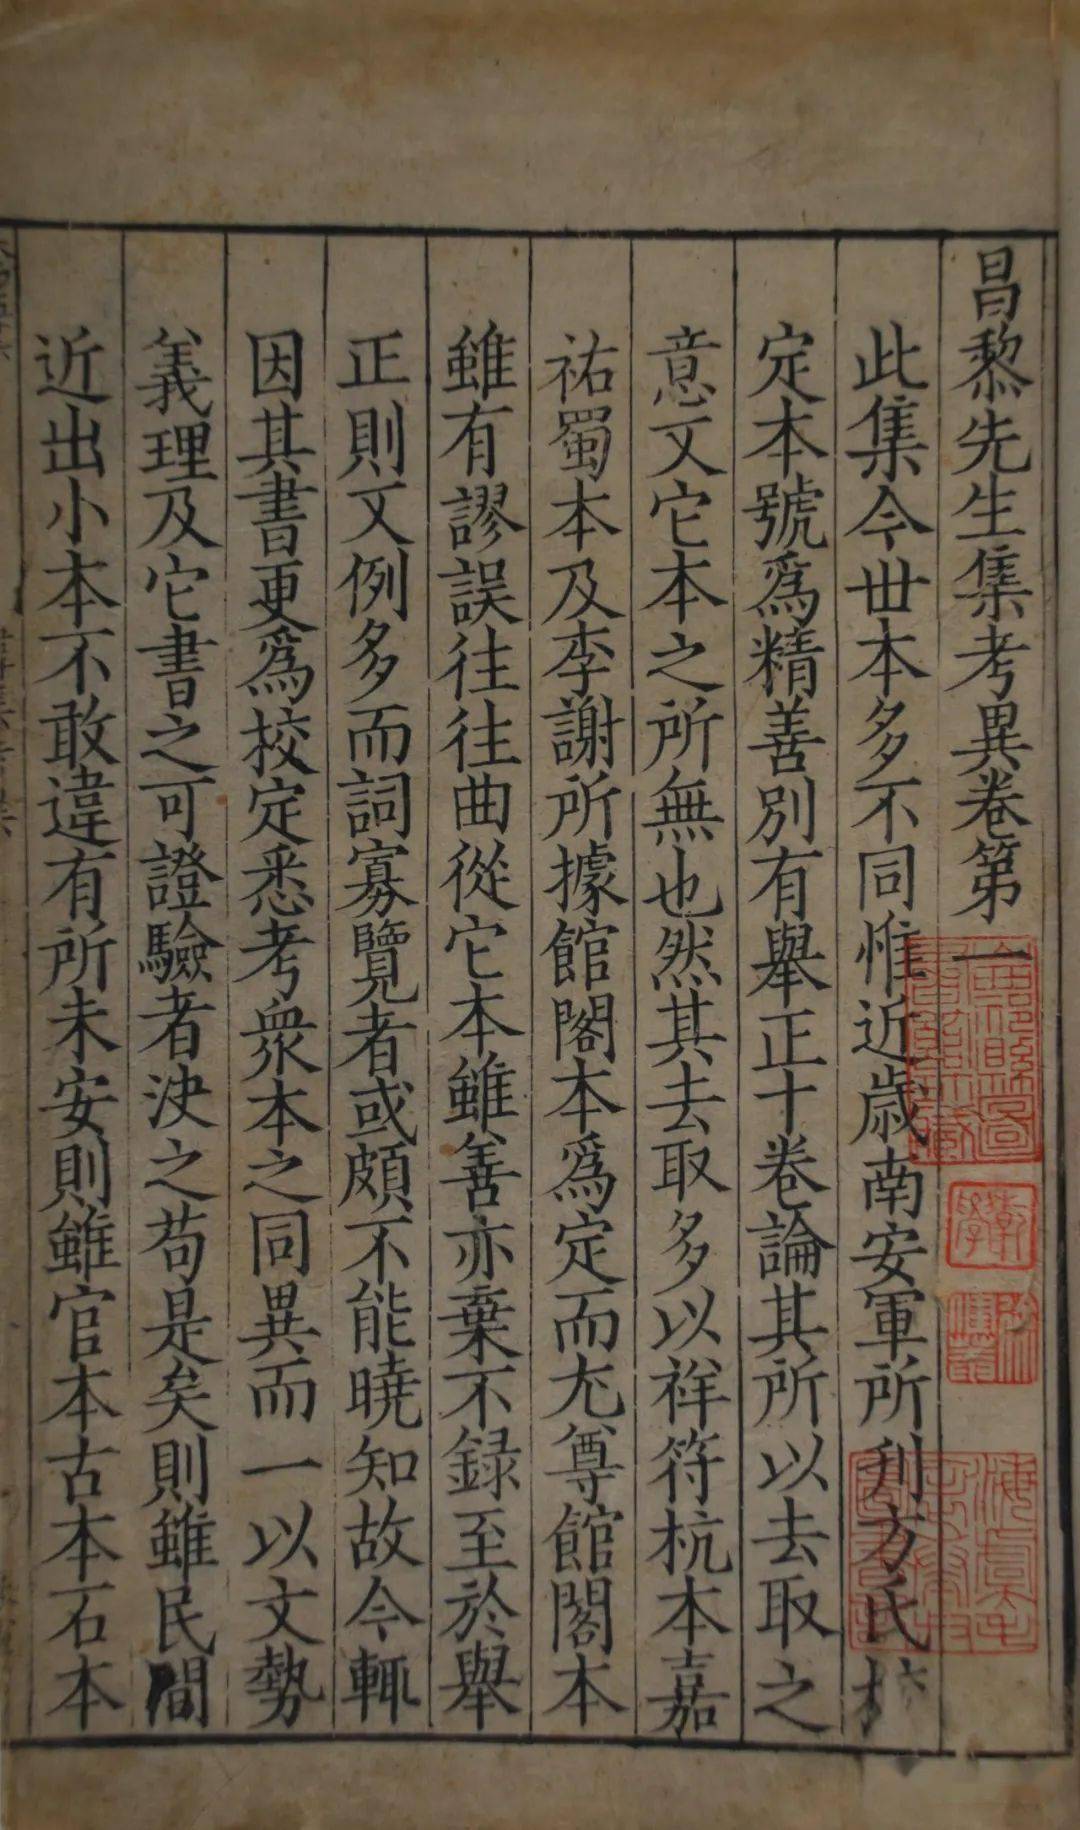 昌黎先生集考異卷第一
此集今世本多不同惟近歲南安軍所刋方氏校
定本號爲精善別有舉正十卷論其所以去取之
意又它本之所無也然其去取多以祥符杭本嘉
祐蜀本及李謝所據館閣本爲定而尤尊館閣本
雖有謬誤往往曲從它本雖善亦棄不録至於舉
正則又例多而詞寡覽者或頗不能曉知故今輒
因其書更爲校定悉考衆本之同異而一以文勢
義理及它書之可證驗者決之苟是矣則雖民間
近出小本不敢違有所未安則雖官本古本石本